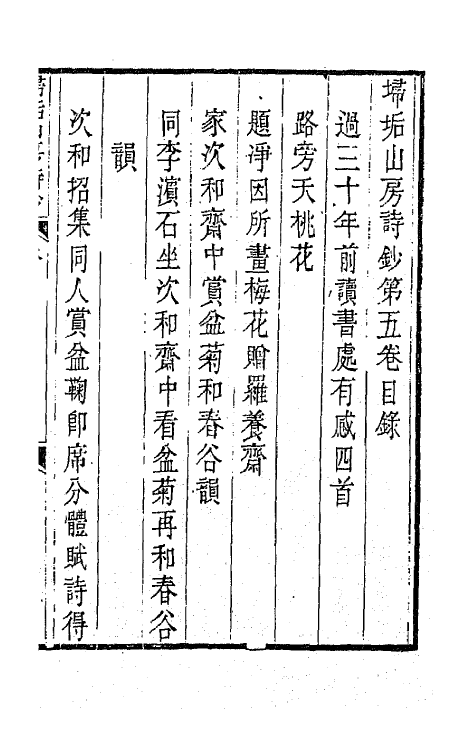 埽垢山房詩鈔第五卷目錄
過三十年前讀書處有感四首
路旁夭桃花
題淨因所畫梅花贈羅養齋
家次和齋中賞盆菊和春谷韻
同李濱石坐次和齋中看盆菊再和春谷
韻
次和招集同人賞盆鞠卽席分體賦詩得